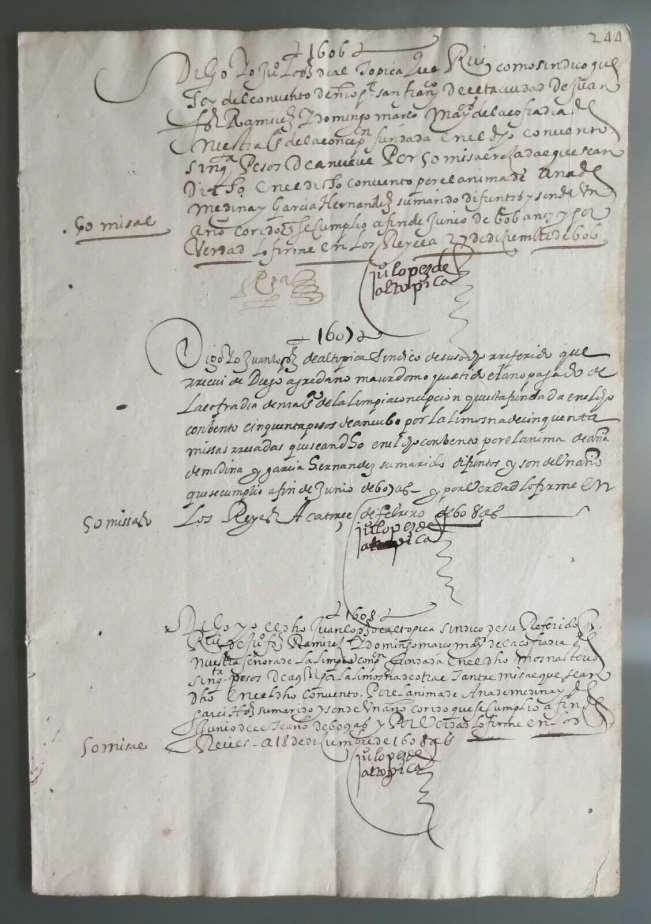 244
1606
Digo Yo Ju° Lopez de al topica que Reui como sindico que
soy del convento de nro pe san franco de esta ciudad de Juan
frz Ramirez y Domingo marco mayos de la cofradia de
Nuestra sa de la concepon fundada en el dho convento
sinqta Pesos De a nueve Por 50 misas resadas que sean
Dicho en el dicho convento por el anima de ana de
medina y Garcia Hernandez su marido difuntos y son de Un
año corido que se cumplio a fin de Junio de 606 anos y por
Verdad lo firme en Los Reyes a 27 de disiembre de 606
50 misas
ju° lopez de
altopica
1607
Digo Yo Juan lopez de altopica Sindico de suso dho rreferido que
rreceui de Diego
La cofradia de nra sa de la limpia concepcion questa fundada en el dho
conbento cinquenta pesos de a nuebo por la limosna de cinquenta
missas rresadas que sean dho en el dho conbento por el anima de ana
de medina y garcia Hernandez su marido difuntos y son de Un año
que se cumplio a fin de Junio de 607 as y por Verdad lo firme en
50 missas
Los Reyes A catorce de febrero de 608 as
ju° lopez de
altopica
1608
Digo yo el dho Juan lopez de altopica sindico de su Referido
Reui de Ju° frz Ramirez y Domingo marco mayos de la cofradia de
Nuestra señora de la limpia conpon fundada en el dho monasterio
sinqta pesos De a 9 Por la limosna de otras tantas misas que sean
dho en el dho convento Por el anima de Ana de medina y de
Garci Hrz su marido y son de Un año corido que se cumplio a fin
de Junio de este año de 608 as y Por Verdad lo firme en los
50 misas
Reyes a 18 de disiembre de 1608 as
ju° lopez de
altopica